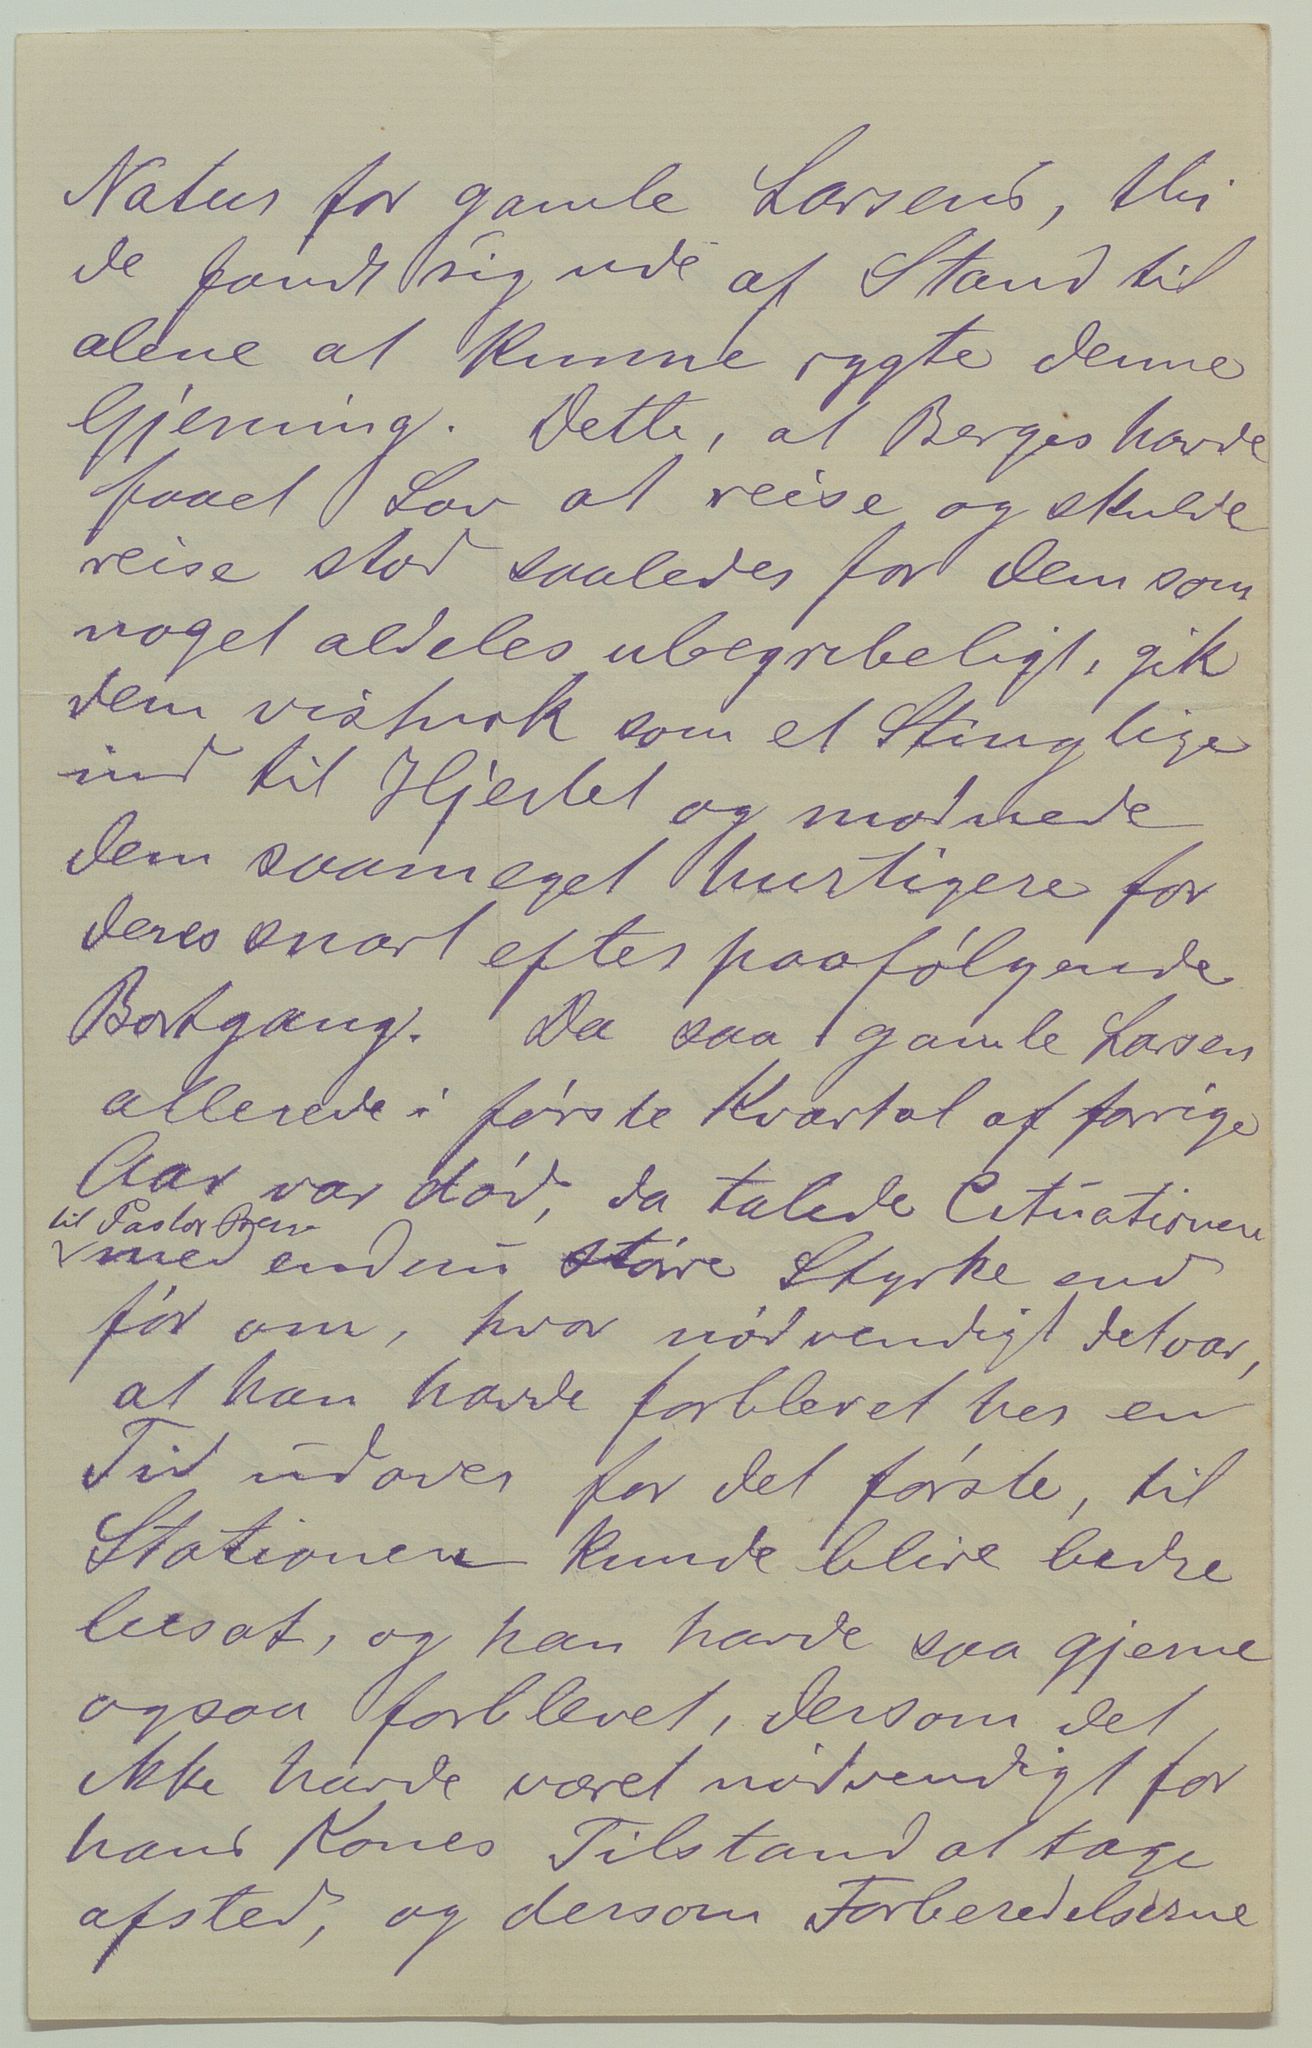 Natur for gamle Larsens, thi
de fandt sig ude af Stand til
alene at kunne rygte denne
Gjerning. Dette, at Berges havde
faaet Lov at reise og skulde
reise stod saaledes for dem som
noget aldeles ubegribeligt, gik
dem vistnok som et Sting lige
ind til Hjertet og modnede
dem saameget hurtigere for
deres snart efter paafølgende
Bortgang. Da saa gamle Larsen
allerede i første Kvartal af forrige
Aar var død, da talede Cituationen
til Pastor
med endnu større Styrke end
før om, hvor nødvendigt det var,
at han havde forblevet her en
Tid udover for det første, til
Stationen kunde blive bedre
besat, og han havde saa gjerne
ogsaa forblevet, dersom det
ikke havde været nødvendigt for
hans Kones Tilstand at tage
afsted, og dersom Forberedelserne